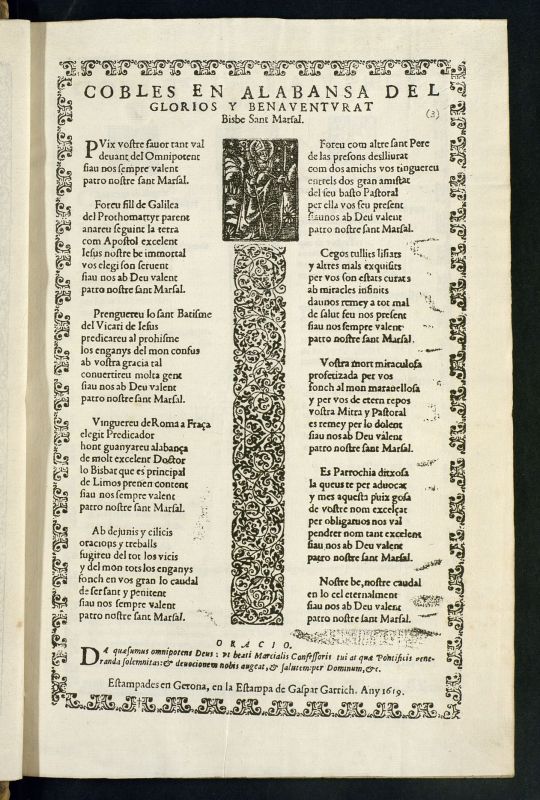 COBLES EN ALABANSA DEL
GLORIOS Y BENAVENTVRAT
Bisbe Sant Marsal.
(3)
PVix vostre fauor tant val
deuant del Omnipotent
siau nos sempre valent
patro nostre sant Marsal.
Foreu fill de Galilea
del Prothomartyr parent
anareu seguint la terra
com Apostol excelent
Iesus nostre be immortal
vos elegi son seruent
siau nos ab Deu valent
patro nostre sant Marsal.
Prenguereu lo sant Batisme
del Vicari de Iesus
predicareu al prohisme
los enganys del mon confus
ab vostra gracia tal
conuertireu molta gent
siau nos ab Deu valent
patro nostre sant Marsal.
Vinguereu de Roma a Fraça
elegit Predicador
hont guanyareu alabança
de molt excelent Doctor
lo Bisbat que es principal
de Limos prenen content
siau nos sempre valent
patro nostre sant Marsal.
Ab dejunis y cilicis
oracions y treballs
fugireu del tot los vicis
y del mon tots los enganys
fonch en vos gran lo caudal
de ser sant y penitent
siau nos sempre valent
patro nostre sant Marsal.
Foreu com altre sant Pere
de las presons deslliurat
com dos amichs vos tinguereu
entrels dos gran amistat
del seu basto Pastoral
per ella vos feu present
siaunos ab Deu valent
patro nostre sant Marsal.
Cegos tullits lisiats
y altres mals exquisits
per vos son estats curats
ab miracles infinits
daunos remey a tot mal
de salut feu nos present
siau nos sempre valent
patro nostre sant Marsal.
Vostra mort miraculosa
profetizada per vos
fonch al mon marauellosa
y per vos de etern repos
vostra Mitra y Pastoral
es remey per lo dolent
siau nos ab Deu valent
patro nostre sant Marsal.
Es Parrochia ditxosa
la queus te per aduocat
y mes aquesta puix gosa
de vostre nom excelçat
per obligatuos nos val
pendrer nom tant excelent
siau nos ab Deu valent
patro nostre sant Marsal.
Nostre be, nostre caudal
en lo cel eternalment
siau nos ab Deu valent
patro nostre sant Marsal.
ORACIO.
DA quæsumus omnipotens Deus: vt beati Marcialis Confessoris tui atquæ Pontificis vene-
randa solemnitas: & deuocionem nobis augeat, & salutem: per Dominum, &c.
Estampades en Gerona, en la Estampa de Gaspar Garrich. Any 1619.